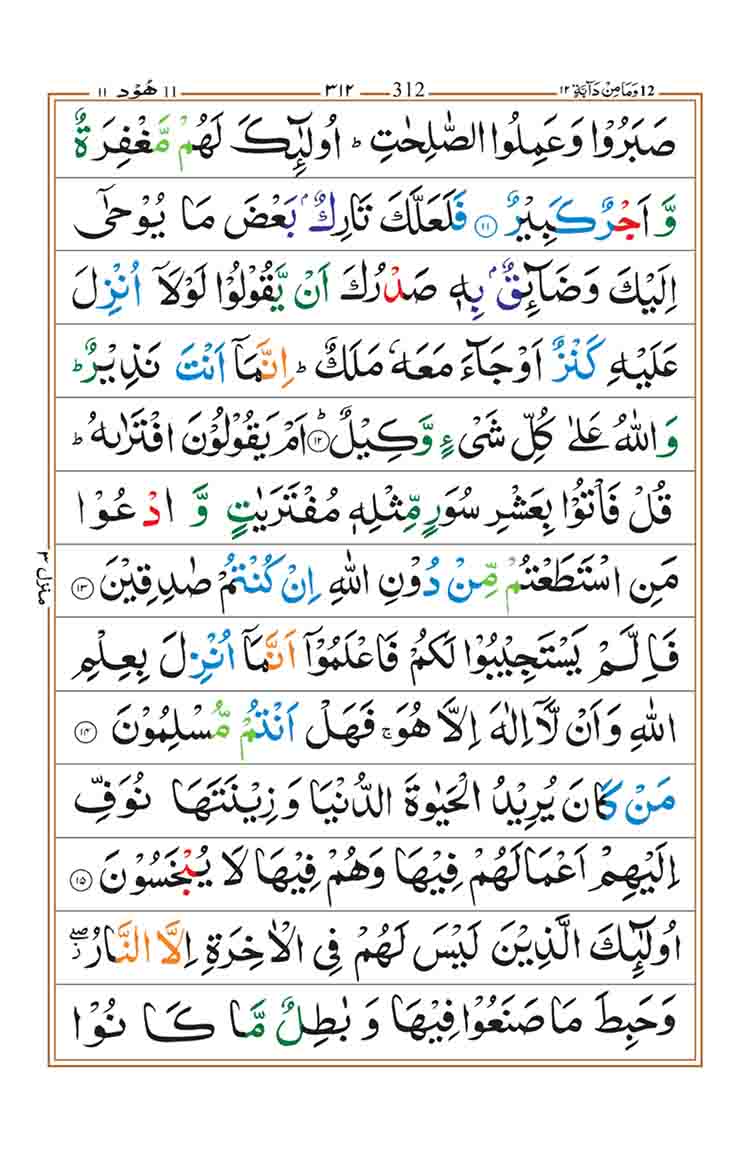 12 وَمَا مِنْ دَآبَّةٍ ١٢ 312 ٣١٢ 11 هُوْد ١١
صَبَرُوْا وَعَمِلُوا الصّٰلِحٰتِ ؕ اُولٰٓئِكَ لَهُمْ مَّغْفِرَةٌ
وَّ اَجْرٌ كَبِيْرٌ ۝۱۱ فَلَعَلَّكَ تَارِكٌۢ بَعْضَ مَا يُوْحٰۤى
اِلَيْكَ وَضَآئِقٌۢ بِهٖ صَدْرُكَ اَنْ يَّقُوْلُوْا لَوْلَاۤ اُنْزِلَ
عَلَيْهِ كَنْزٌ اَوْ جَآءَ مَعَهٗ مَلَكٌ ؕ اِنَّمَاۤ اَنْتَ نَذِيْرٌ ؕ
وَ اللّٰهُ عَلٰى كُلِّ شَىْءٍ وَّكِيْلٌ ؕ۝۱۲ اَمْ يَقُوْلُوْنَ افْتَرٰٮهُ ؕ
قُلْ فَاْتُوْا بِعَشْرِ سُوَرٍ مِّثْلِهٖ مُفْتَرَيٰتٍ وَّ ادْعُوْا
مَنِ اسْتَطَعْتُمْ مِّنْ دُوْنِ اللّٰهِ اِنْ كُنْتُمْ صٰدِقِيْنَ ۝۱۳
فَاِلَّمْ يَسْتَجِيْبُوْا لَكُمْ فَاعْلَمُوْۤا اَنَّمَاۤ اُنْزِلَ بِعِلْمِ
اللّٰهِ وَاَنْ لَّاۤ اِلٰهَ اِلَّا هُوَ ۚ فَهَلْ اَنْتُمْ مُّسْلِمُوْنَ ۝۱۴
مَنْ كَانَ يُرِيْدُ الْحَيٰوةَ الدُّنْيَا وَ زِيْنَتَهَا نُوَفِّ
اِلَيْهِمْ اَعْمَالَهُمْ فِيْهَا وَهُمْ فِيْهَا لَا يُبْخَسُوْنَ ۝۱۵
اُولٰٓئِكَ الَّذِيْنَ لَيْسَ لَهُمْ فِى الْاٰخِرَةِ اِلَّا النَّارُ ۖز
وَحَبِطَ مَا صَنَعُوْا فِيْهَا وَ بٰطِلٌ مَّا كَانُوْا
منزل ٣